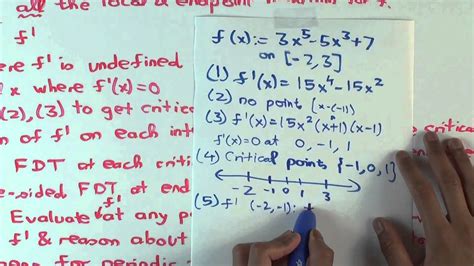 all the local & endpoint
f'
ere f' is undefined
x where f'(x)=0
(2),(3) to get critica
n of f' on each int
FDT at each
e-sided FDT at end
Evaluate f' at any p
f' & reason about
f(x):= 3x⁵-5x³+7
on [-2,3]
(1) f'(x)=15x⁴-15x²
(2) no point (x-(-1))
(3) f'(x)=15x²(x+1)(x-1)
f'(x)=0 at 0,-1,1
(4) Critical points {-1,0,1}
-2 -1 0 1 3
(5) f' (-2,-1):
critical